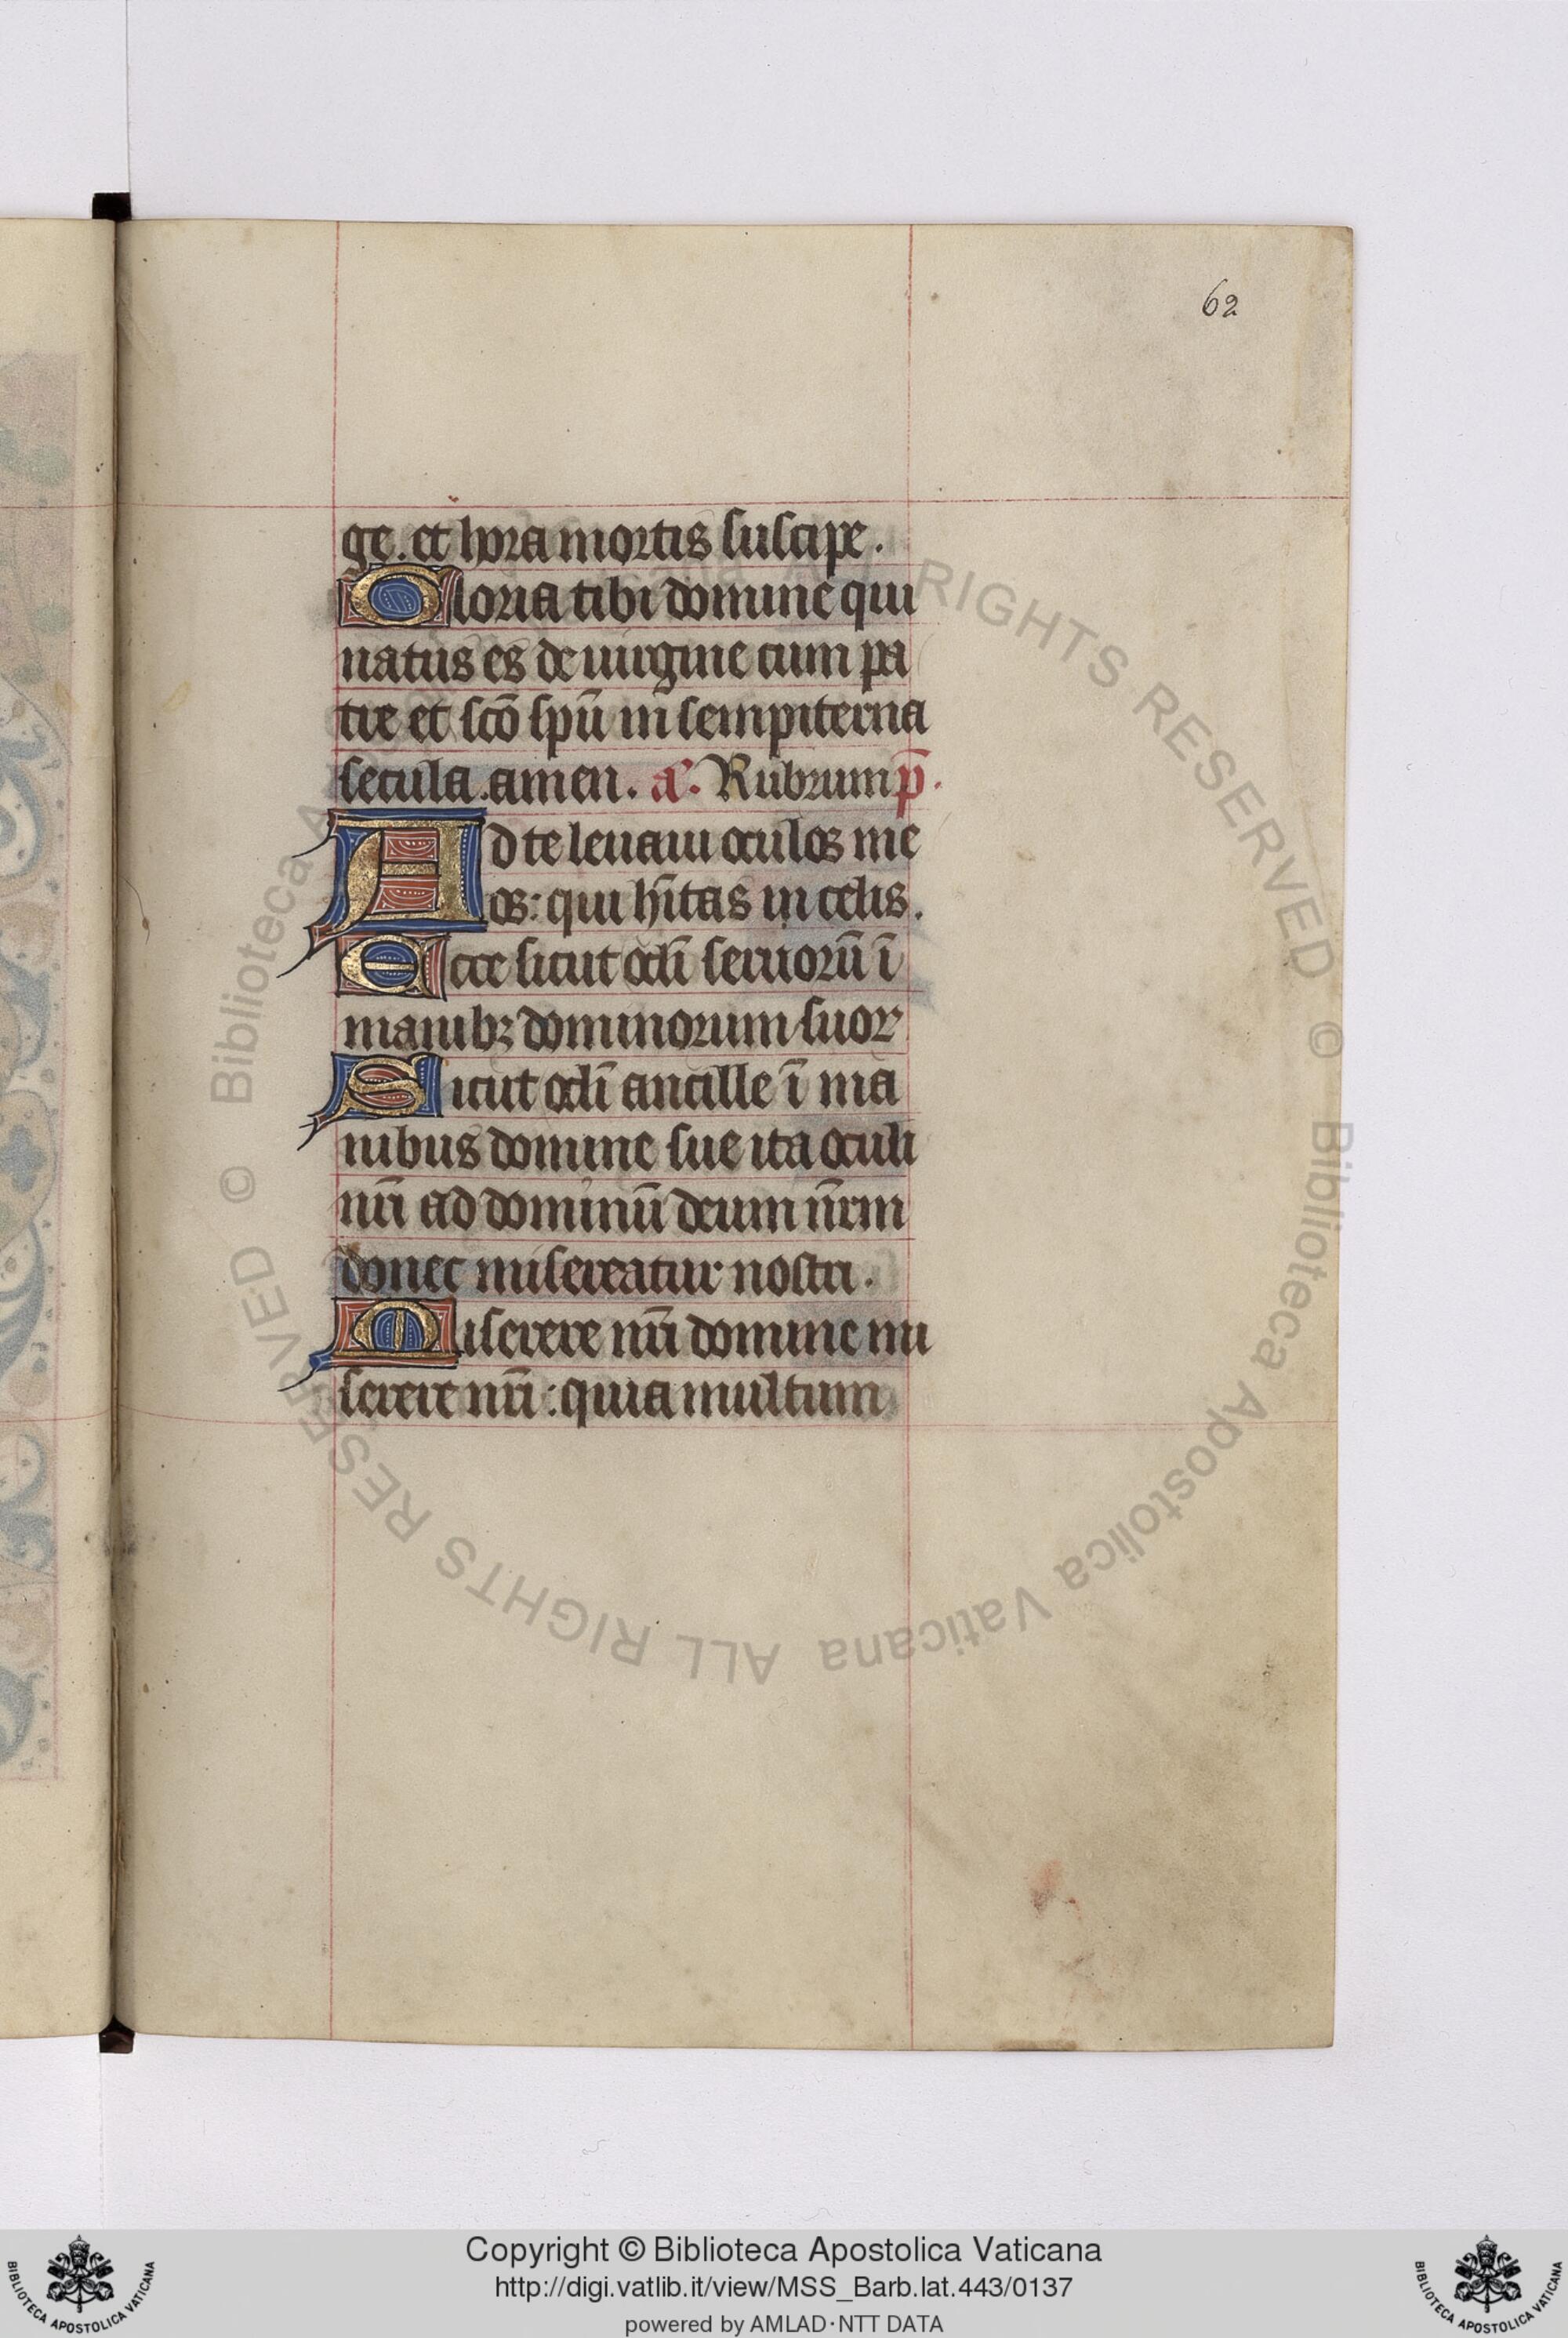 62
ge. et hora mortis suscipe.
Gloria tibi domine qui
natus es de uirgine cum pa
tre et sc̄o sp̄u in sempiterna
secula. amen. a͛. Rubrum p̄.
Ad te leuaui oculos me
os: qui h̄itas in celis.
Ecce sicut oc̄li seruorū ī
manibꝫ dominorum suoꝝ
Sicut oc̄li ancille ī ma
nibus domine sue ita oculi
nr̄i ad dominū deum nr̄m
donec misereatur nostri.
Miserere nr̄i domine mi
serere nr̄i: quia multum
© Biblioteca Apostolica Vaticana ALL RIGHTS RESERVED © Biblioteca Apostolica Vaticana ALL RIGHTS RESERVED
Copyright © Biblioteca Apostolica Vaticana
http://digi.vatlib.it/view/MSS_Barb.lat.443/0137
powered by AMLAD·NTT DATA
BIBLIOTECA APOSTOLICA VATICANA
BIBLIOTECA APOSTOLICA VATICANA